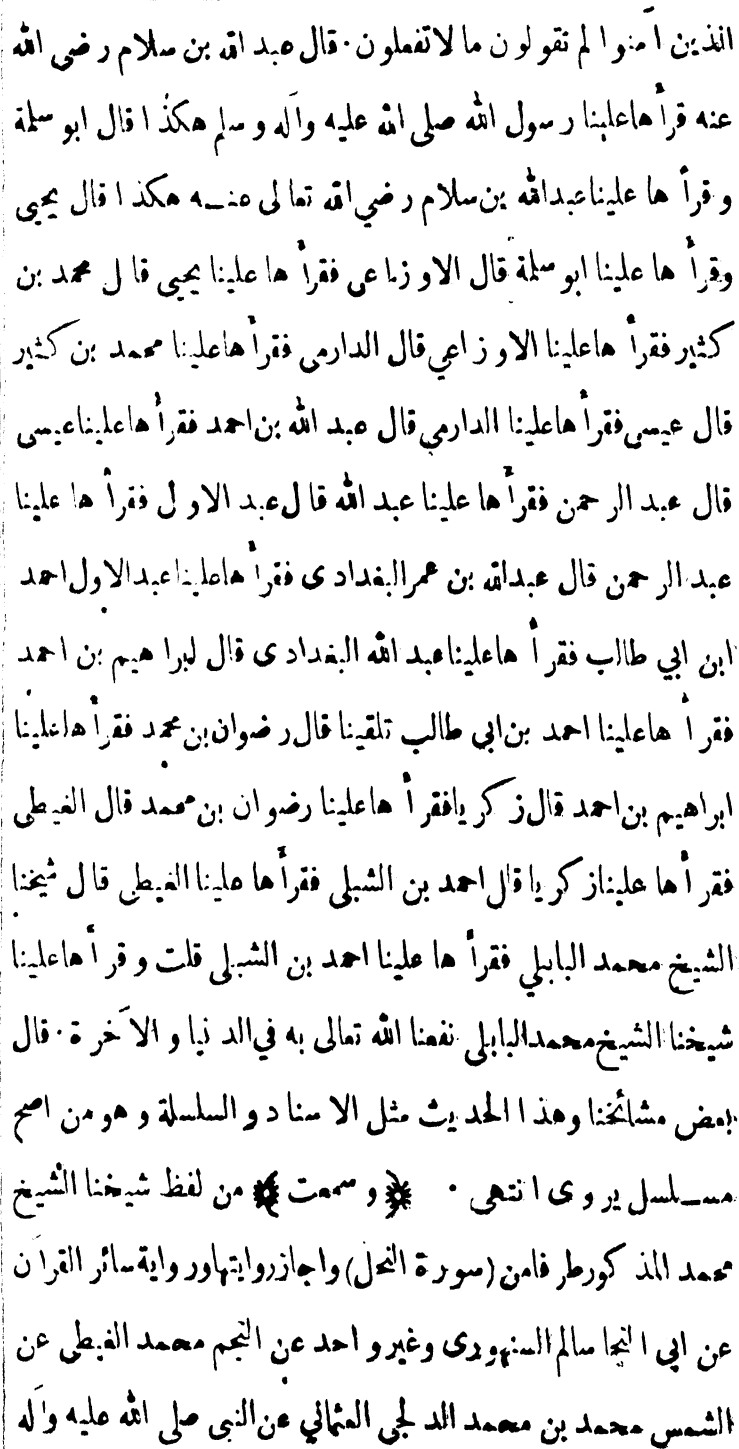 الذين آمنوا لم تقولون ما لا تفعلون · قال عبد الله بن سلام رضى الله
عنه قرأها علينا رسول الله صلى الله عليه وآله وسلم هكذا قال ابو سلمة
وقرأها علينا عبدالله بن سلام رضي الله تعالى عنه هكذا قال يحيى
وقرأها علينا ابو سلمة قال الاوزاعى فقرأها علينا يحيى قال محمد بن
كثير فقرأها علينا الاوزاعي قال الدارمى فقرأها علينا محمد بن كثير
قال عيسى فقرأها علينا الدارمي قال عبد الله بن احمد فقرأها علينا عيسى
قال عبد الرحمن فقرأها علينا عبد الله قال عبد الاول فقرأها علينا
عبد الرحمن قال عبدالله بن عمر البغدادى فقرأها علينا عبدالاول احمد
ابن ابي طالب فقرأها علينا عبد الله البغدادى قال ابراهيم بن احمد
فقرأها علينا احمد بن ابى طالب تلقينا قال رضوان بن محمد فقرأها علينا
ابراهيم بن احمد قال زكريا فقرأها علينا رضوان بن محمد قال الغيطى
فقرأها علينا زكريا قال احمد بن الشبلى فقرأها علينا الغيطى قال شيخنا
الشيخ محمد البابلي فقرأها علينا احمد بن الشبلى قلت وقرأها علينا
شيخنا الشيخ محمد البابلى نفعنا الله تعالى به في الدنيا والآخرة · قال
بعض مشائخنا وهذا الحديث مثل الاسناد والسلسلة وهو من اصح
مسلسل يروى انتهى · ﴿وسمعت﴾ من لفظ شيخنا الشيخ
محمد المذكور طرفا من (سورة النحل) واجاز روايتها ورواية سائر القرآن
عن ابى النجا سالم السنهورى وغير واحد عن النجم محمد الغيطى عن
الشمس محمد بن محمد الدلجى العثماني عن النبى صلى الله عليه وآله